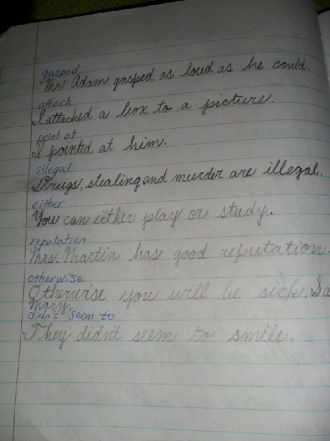 gasped
Mr. Adam gasped as loud as he could
attach
I attached a box to a picture.
point at
I pointed at him.
illegal
Drugs, stealing and murder are illegal.
either
You can either play or study.
reputation
Mrs. Martin has good reputation.
otherwise
Otherwise you will be sick. Sa
Mary.
didn't seem to
They didn't seem to smile.